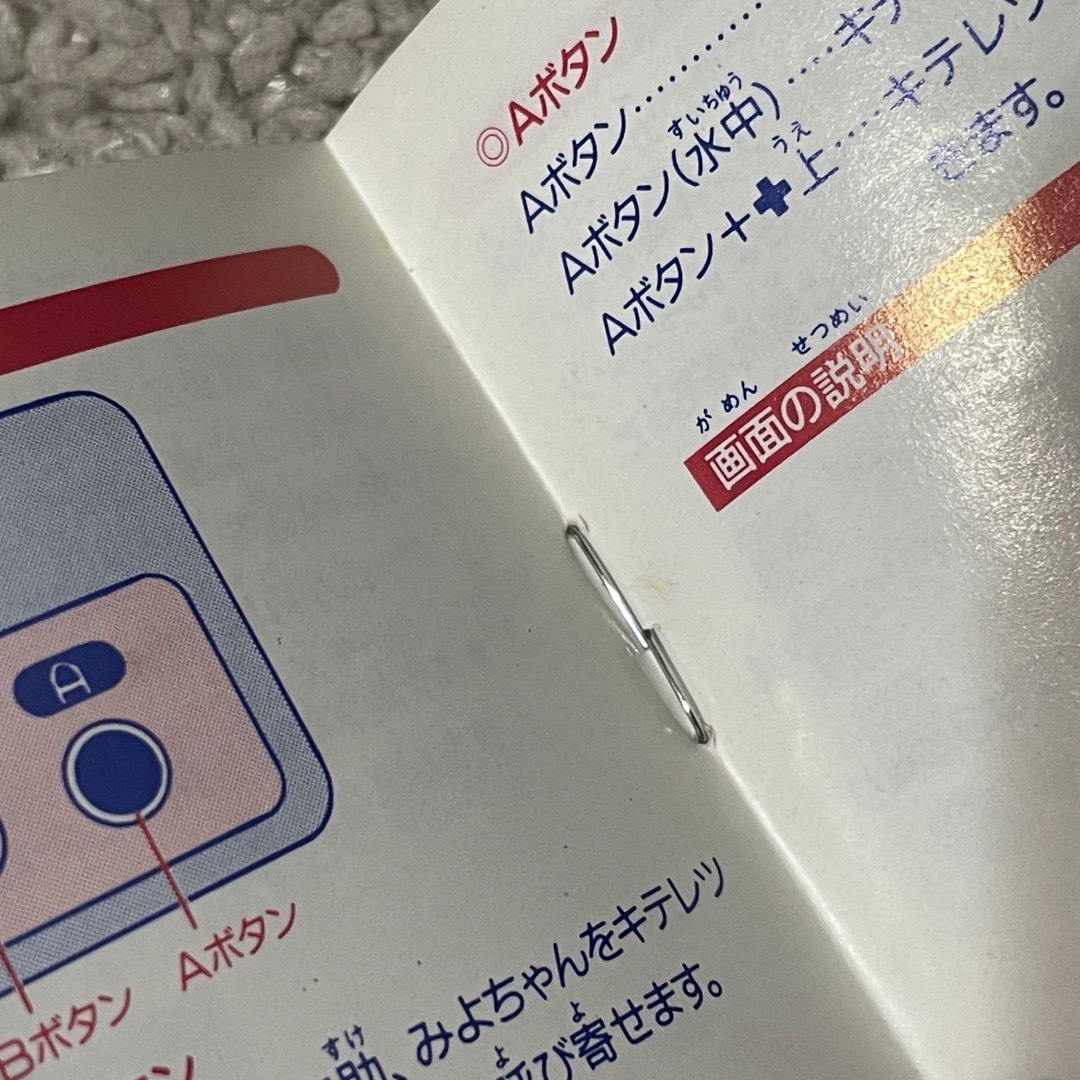 A
Aボタン
Bボタン
助、みよちゃんをキテレツ
び寄せます。
◎Aボタン
Aボタン…………
Aボタン(水中)……キテ
Aボタン+✚上……キテレツ
きます。
画面の説明